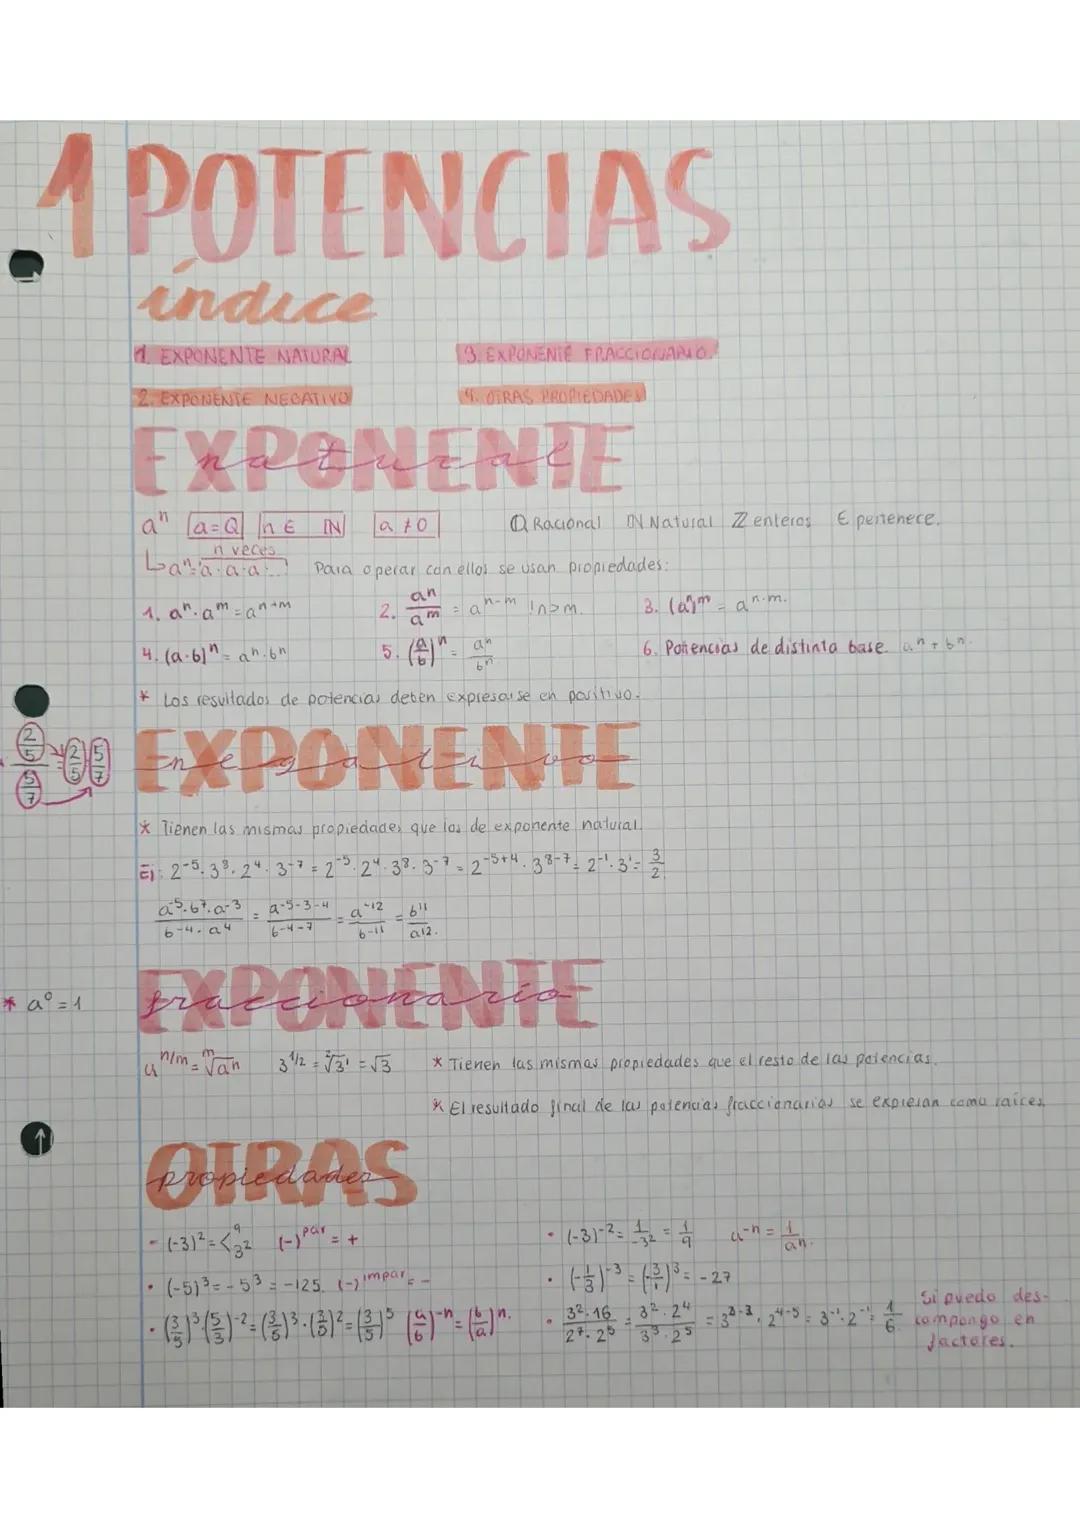 1 POTENCIAS
índice
1. EXPONENTE NATURAL
3. EXPONENTE FRACCIONARIO.
2. EXPONENTE NEGATIVO
4. OTRAS PROPIEDADES
EXPONENTE
natural
aⁿ a=Q n ∈ ℕ a ≠ 0 ℚ Racional ℕ Natural ℤ enteros ∈ pertenece.
n veces
↳ aⁿ = a·a·a·... Para operar con ellos se usan propiedades:
1. aⁿ·aᵐ = aⁿ⁺ᵐ 2. aⁿ/aᵐ = aⁿ⁻ᵐ !n>m. 3. (aⁿ)ᵐ = aⁿ·ᵐ.
4. (a·b)ⁿ = aⁿ·bⁿ 5. (a/b)ⁿ = aⁿ/bⁿ 6. Potencias de distinta base aⁿ + bⁿ.
* Los resultados de potencias deben expresarse en positivo.
2/5 / 5/7 = 2/5 · 5/7
EXPONENTE
negativo
* Tienen las mismas propiedades que las de exponente natural.
Ej: 2⁻⁵·3⁸·2⁴·3⁻⁷ = 2⁻⁵·2⁴·3⁸·3⁻⁷ = 2⁻⁵⁺⁴·3⁸⁻⁷ = 2⁻¹·3¹ = 3/2.
a⁻⁵·b⁷·a⁻³ / b⁻⁴·a⁴ = a⁻⁵⁻³⁻⁴ / b⁻⁴⁻⁷ = a⁻¹² / b⁻¹¹ = b¹¹ / a¹².
EXPONENTE
fraccionario
* a⁰ = 1
a^(n/m) = ᵐ√aⁿ 3^(1/2) = ²√3¹ = √3 * Tienen las mismas propiedades que el resto de las potencias.
* El resultado final de las potencias fraccionarias se expresan como raíces.
OTRAS
propiedades
- (-3)² = < 9 3² (-)^par = +
· (-3)⁻² = 1/-3² = 1/9 a⁻ⁿ = 1/aⁿ.
· (-5)³ = -5³ = -125. (-)^impar = -
· (-1/3)⁻³ = (-3/1)³ = -27
· (3/5)³·(5/3)⁻² = (3/5)³·(3/5)² = (3/5)⁵ (a/b)⁻ⁿ = (b/a)ⁿ.
· 3²·16 / 27·2⁵ = 3²·2⁴ / 3³·2⁵ = 3²⁻³·2⁴⁻⁵ = 3⁻¹·2⁻¹ = 1/6
Si puedo des-
compongo en
factores.